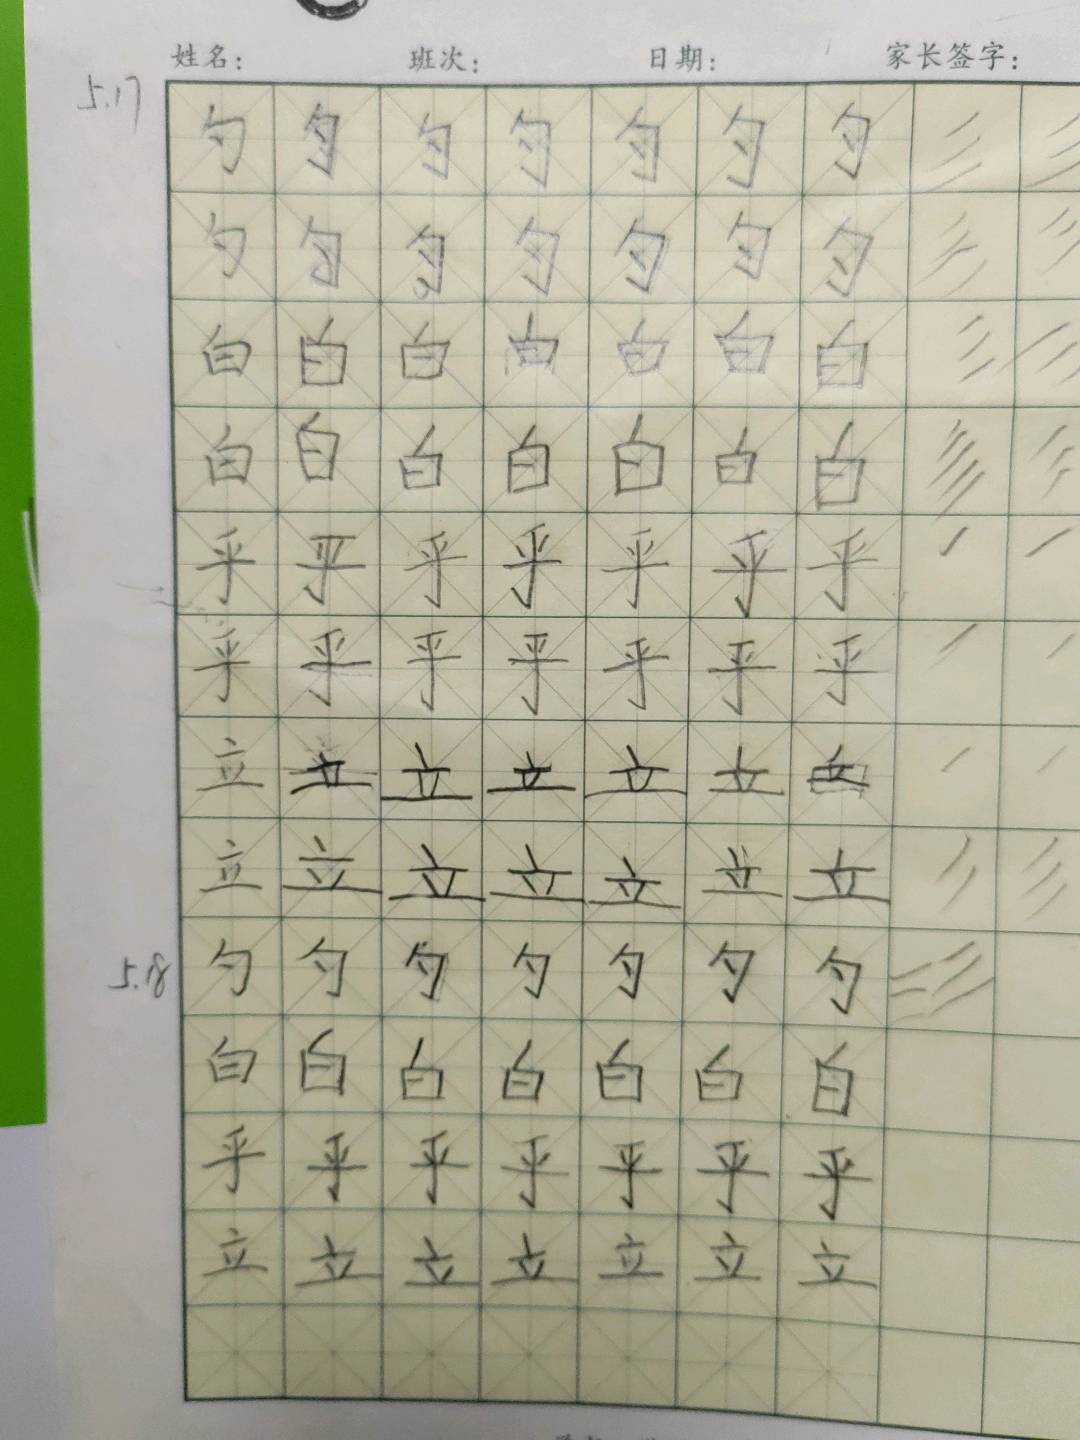 姓名： 班次： 日期： 家长签字：
5.17 勺 勺 勺 勺 勺 勺 勺
勺 勺 勺 勺 勺 勺 勺
白 白 白 白 白 白 白
白 白 白 白 白 白 白
乎 乎 乎 乎 乎 乎 乎
乎 乎 乎 乎 乎 乎 乎
立 立 立 立 立 立 立
立 立 立 立 立 立 立
5.18 勺 勺 勺 勺 勺 勺 勺
白 白 白 白 白 白 白
乎 乎 乎 乎 乎 乎 乎
立 立 立 立 立 立 立